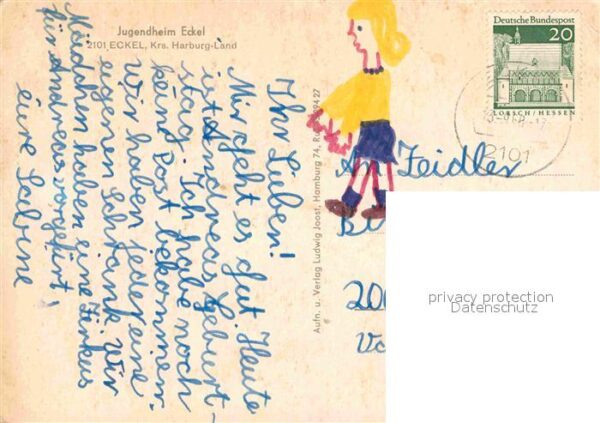 Jugendheim Eckel
2101 ECKEL, Krs. Harburg-Land
Ihr Lieben!
Mir geht es gut. Heute
ist Andreas Geburt-
stag. Ich habe noch
keine Post bekommen.
Wir haben jeder eine
eigenen Schrank. Wir
Mädchen haben eine Zirkus
für Andreas vorgefürt,
eure Sabine
Aufn. u. Verlag Ludwig Joost, Hamburg 74
Deutsche Bundespost
20
LORSCH / HESSEN
2101
An Zeidler
200
privacy protection
Datenschutz